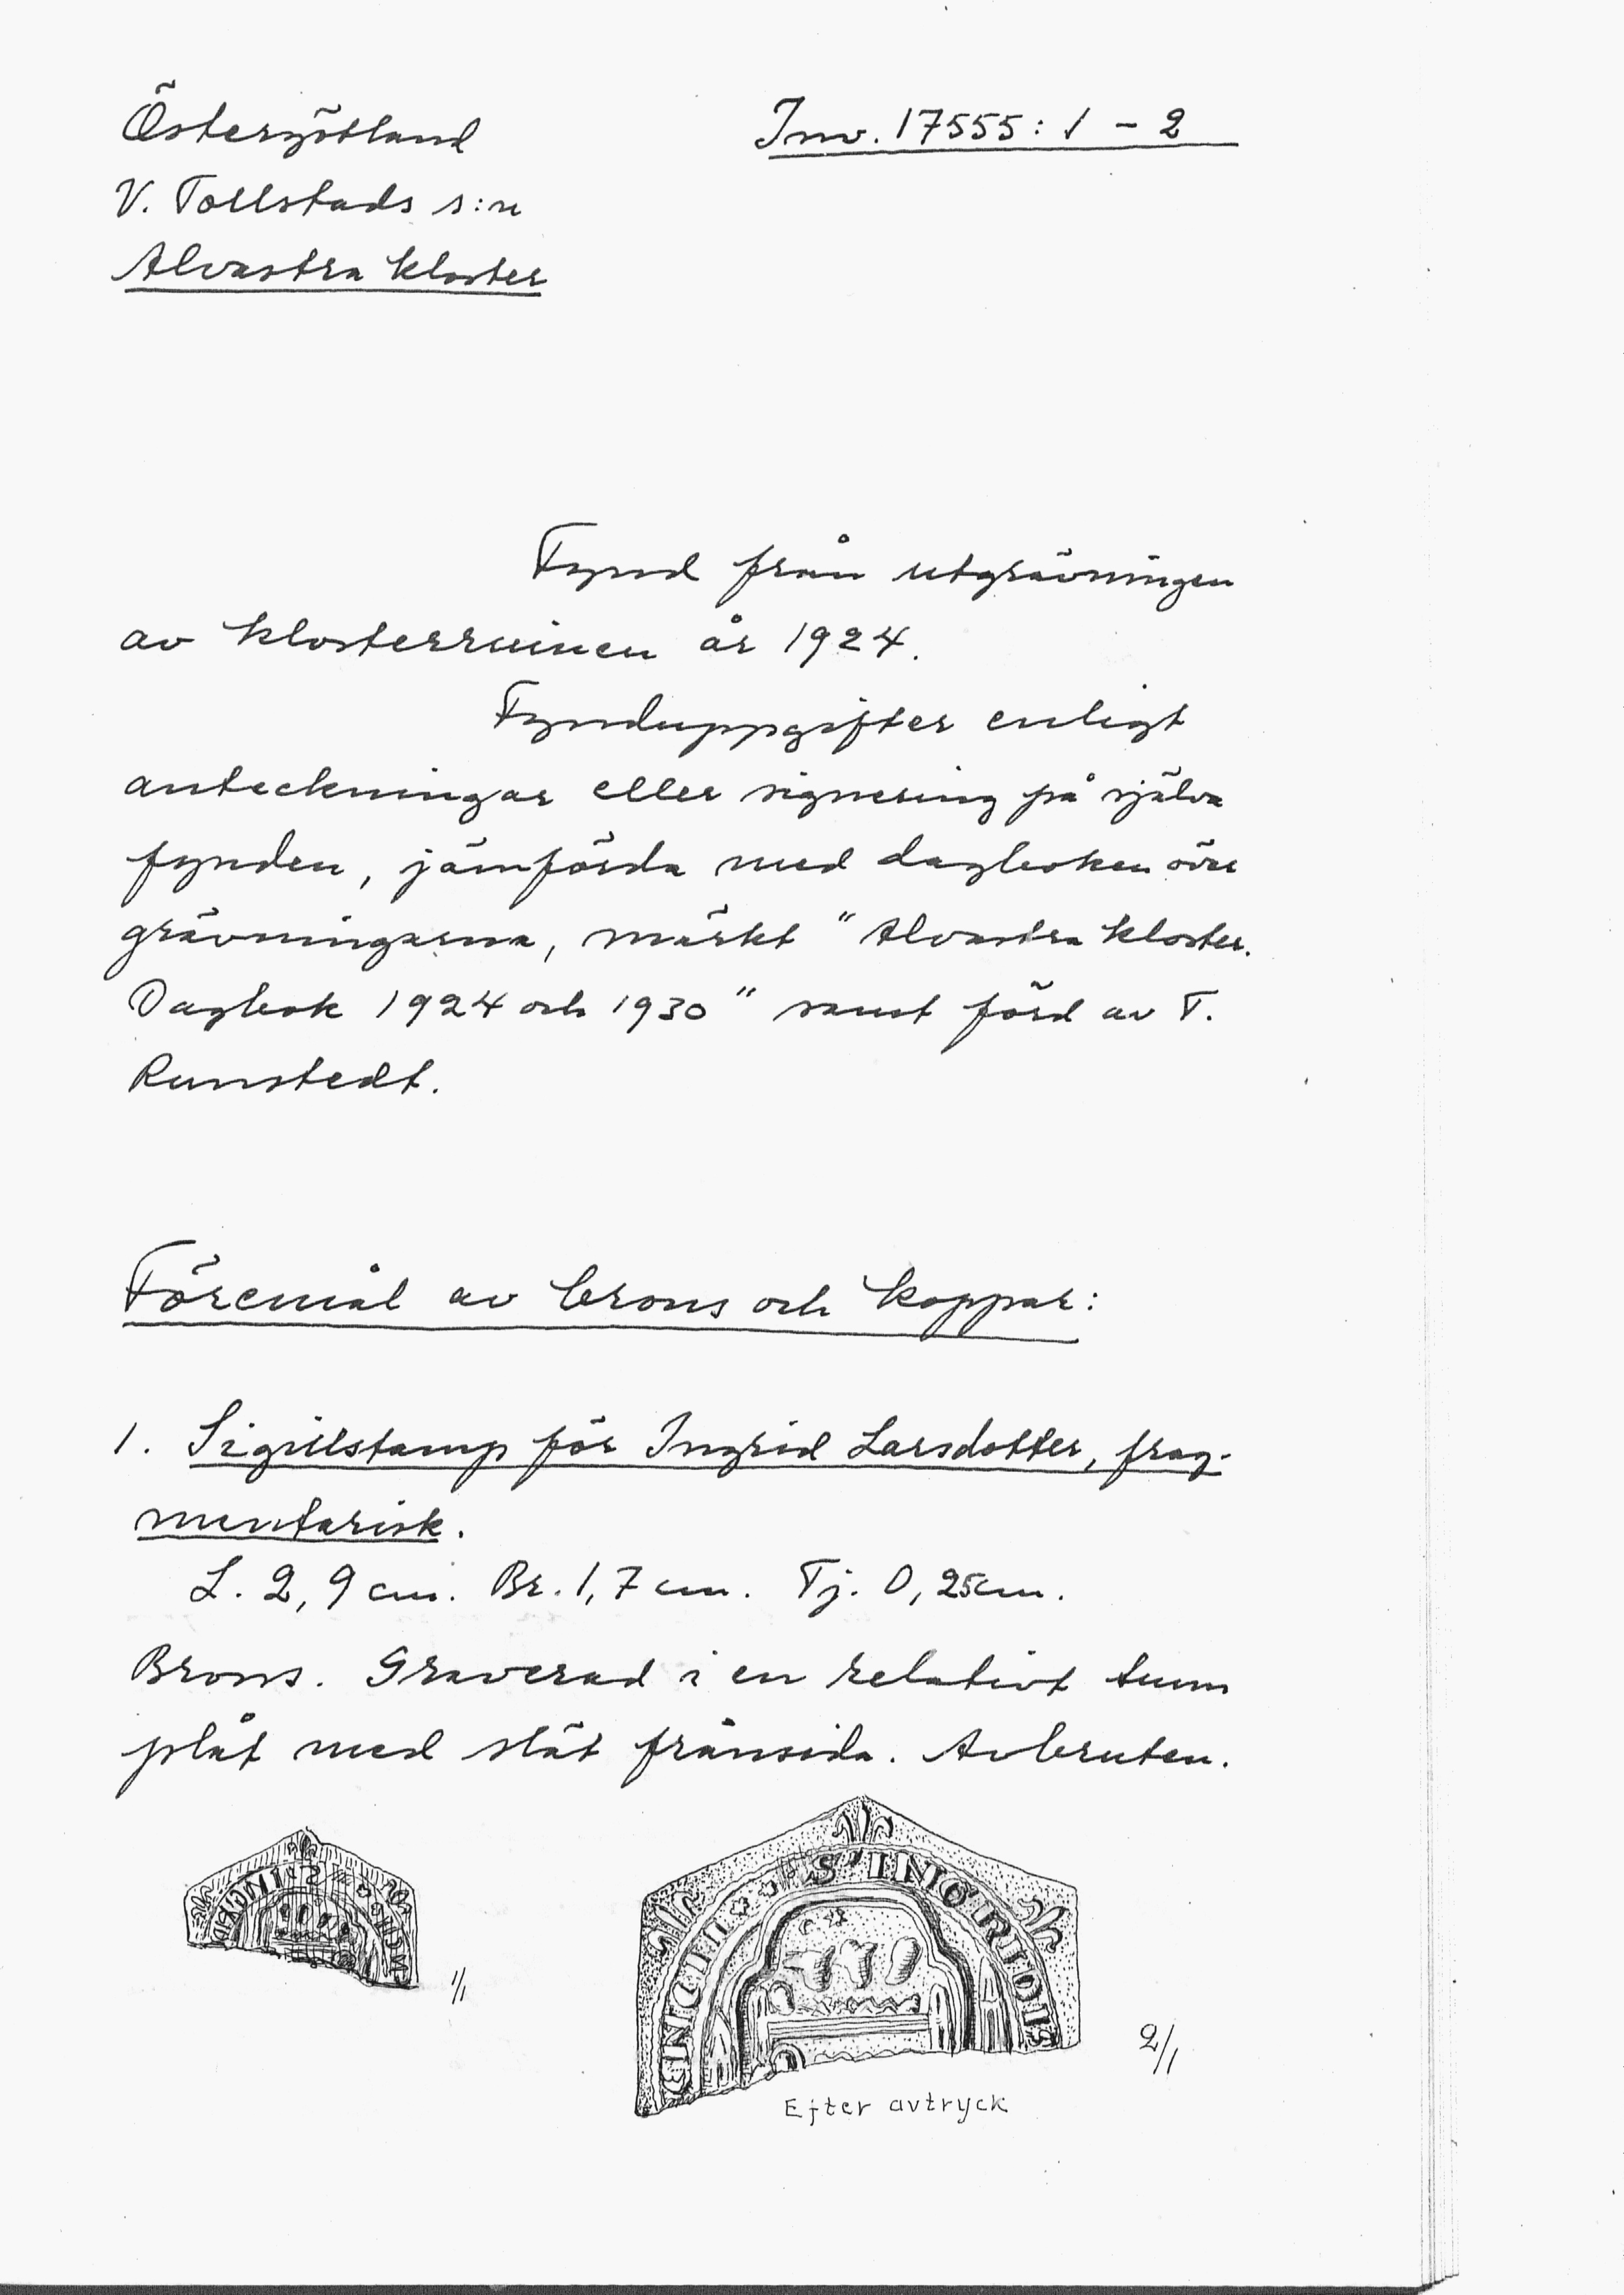 Östergötland
Inv. 17555:1-2
V. Tollstads s:n
Alvastra kloster
Fynd från utgrävningen
av klosterruinen år 1924.
Fynduppgifter enligt
anteckningar eller signering på själva
fynden, jämförda med dagboken över
grävningarna, märkt "Alvastra kloster.
Dagbok 1924 och 1930" samt förd av T.
Runstedt.
Föremål av brons och koppar:
1. Sigillstamp för Ingrid Larsdotter, frag-
mentarisk.
L. 2,9 cm. Br. 1,7 cm. Tj. 0,25 cm.
Brons. Graverad i en relativt tunn
plåt med slät frånsida. Avbruten.
S' INGRIDIS
1/1
2/1
Efter avtryck